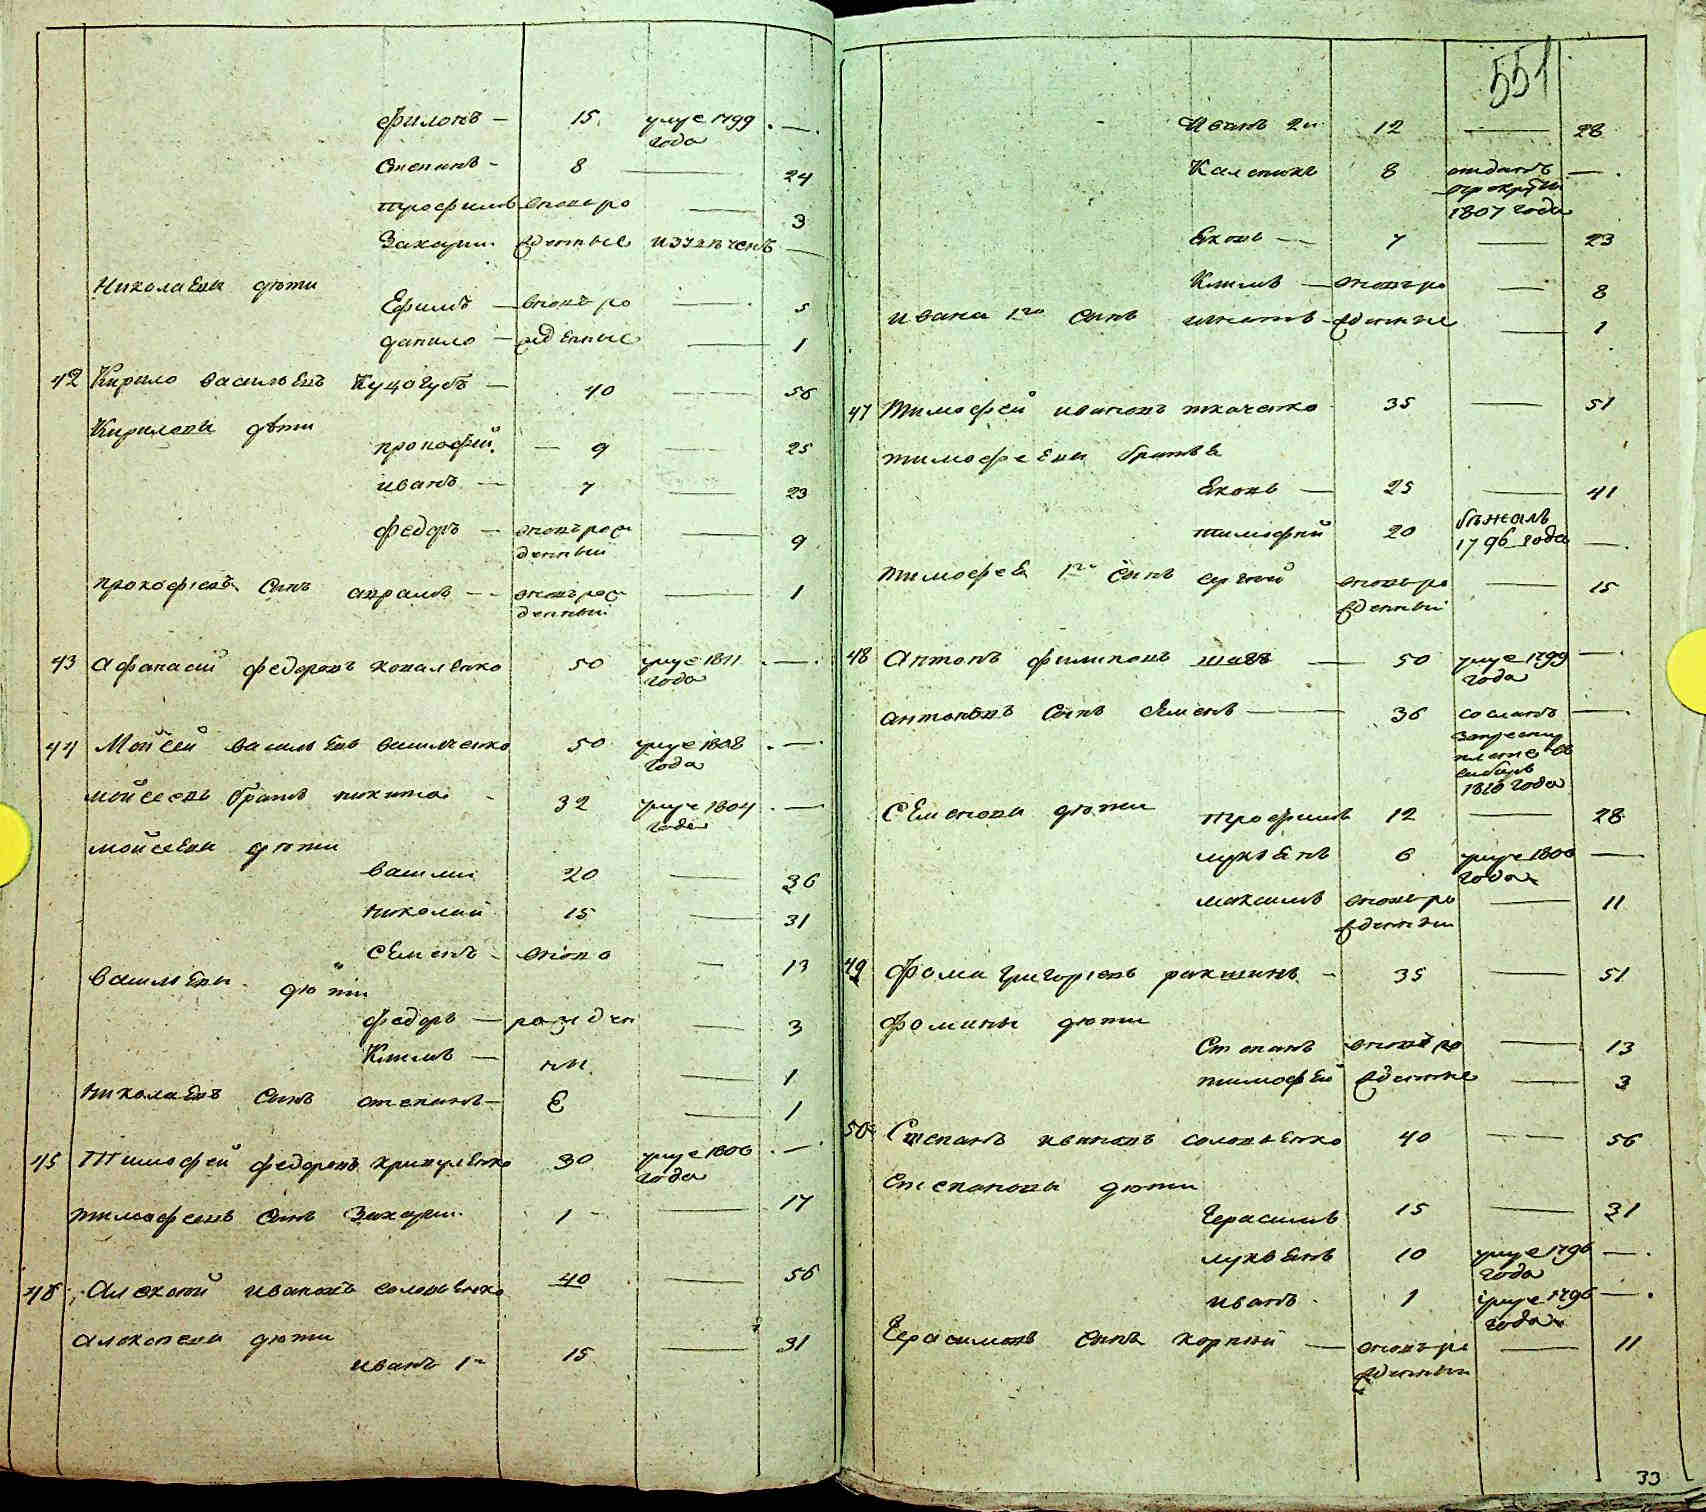 филонъ — 15 умре 1799 года —
Степанъ — 8 — 24
трофимъ вновь ро — 3
Захарии жденные изувѣченъ —
Николаевы дѣти
Ефимъ — вновъ ро — 5
данило — жденные — 1
42 Кирило васильевъ Куцогубъ — 40 — 56
Кириловы дѣти
прокофий — 9 — 25
иванъ — 7 — 23
федоръ — вновърож денный — 9
прокофиевъ Сынъ авраамъ — вновърож денный — 1
43 афанасий федоровъ коваленко 50 умре 1811 года —
44 Мойсей васильевъ василченко 50 умре 1808 года —
мойсеевъ братъ никита 32 умре 1804 года —
мойсеевы дѣти
василий 20 — 36
николай 15 — 31
Семенъ — вново — 13
васильевы дѣти
федоръ — рожден — 3
Климъ — ны — 1
николаевъ Сынъ степанъ — Е — 1
45 Тимофей федоровъ кривуленко 30 умре 1806 года —
тимофеевъ Сынъ Захарии 1 — 17
46 Алексей ивановъ соловьенко 40 — 56
алексеевы дѣти
иванъ 1й 15 — 31
551
Иванъ 2й 12 — 28
Каленикъ 8 отданъ врекруты 1807 года —
Яковъ — 7 — 23
Климъ — вновъро — 8
ивана 1го Сынъ игнатъ — жденные — 1
47 Тимофей ивановъ ткаченко 35 — 51
тимофеевы братья
Яковъ — 25 — 41
тимофей 20 бѣжалъ 1796 года —
тимофея 1го Сынъ сергей вновъро жденный — 15
48 Антонъ филиповъ — 50 умре 1799 года —
антоновъ Сынъ Семенъ — 36 сосланъ в сибирь 1810 года —
Семеновы дѣти
трофимъ 12 — 28
лукьянъ 6 умре 1806 года —
максимъ вновъро жденный — 11
49 Фома григорьевъ ракшинъ — 35 — 51
фомины дѣти
Степанъ вновъро — 13
тимофей жденные — 3
50 Степанъ ивановъ соловьенко 40 — 56
Степановы дѣти
Герасимъ 15 — 31
лукьянъ 10 умре 1796 года —
иванъ 1 умре 1796 года —
Герасимовъ Сынъ корний — вновъро жденный — 11
33